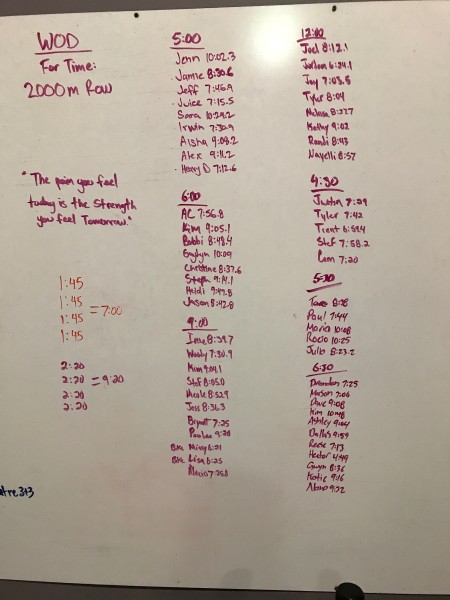 WOD
For Time:
2000m Row
"The pain you feel
today is the Strength
you feel Tomorrow."
1:45
1:45
1:45
1:45
= 7:00
2:20
2:20
2:20
2:20
= 9:20
5:00
Jenn 10:02.3
Jamie 8:30.6
Jeff 7:46.9
Juice 7:15.5
Sara 10:29.2
Irwin 7:30.9
Aisha 9:08.2
Alex 9:11.2
Henry D 7:12.6
6:00
AC 7:56.8
Kim 9:05.1
Bobbi 8:48.4
10:09
Christine 8:37.6
Steph 9:14.1
Heidi 9:49.8
Jason 8:42.8
9:00
Irene 8:39.7
Woody 7:30.9
Kim 9:04.1
Stef 8:05.0
Nicole 8:52.9
Jess 8:36.3
Bryant 7:25
Paulee 9:20
Missy
Lisa 8:25
12:00
Joel 8:12.1
Jordan 6:24.1
Jay 7:03.5
Tyler 8:04
Melissa
Kathy 9:02
Randi 8:43
Nayelli 8:57
4:30
Justin 7:29
Tyler 7:42
Trent
Stef 7:58.2
Cam 7:20
5:30
Paul 7:44
Maria 10:08
Rocio 10:25
Julio 8:23.2
6:30
Brandon 7:25
Mason 7:06
Dave 9:08
Kim 10:48
Ashley 9:04
Dallas 9:59
7:13
Hector
Gwyn 8:36
Katie 9:16
9:22